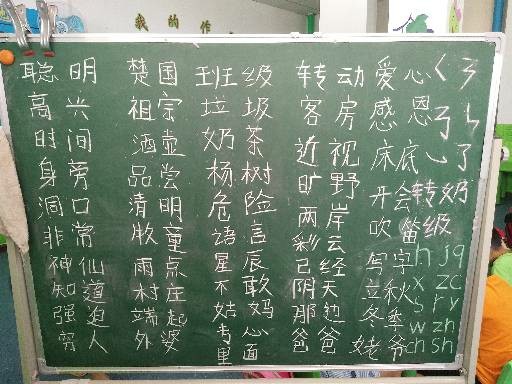 我的作
聪明
高兴
时间
身旁
洞口
非常
神仙
知道
强迫
人
楚国
祖宗
酒壶
品尝
清明
牧童
雨点
村庄
端起
外婆
班级
垃圾
奶茶
杨树
危险
语言
星辰
不敢
姑妈
专心
里面
转动
客房
近视
旷野
两岸
彩云
已经
阴天
那边
爸爸
爱心
感恩
床底
开会
吹笛
写字
立秋
冬季
姥爷
转奶
级
h j q
x z c
s r y
w zh
ch sh